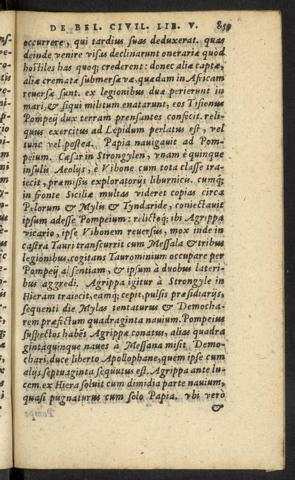 DE BEL. CIVIL. LIB. V. 859
occurrere, qui tardius suas deduxerat. quas
deinde venire visas declinarunt onerariæ quod
hostiles has quoq; crederent: donec aliæ captæ,
aliæ crematæ submersæ væ. quædam in Africam
reuersæ sunt. ex legionibus duæ perierunt in
mari, & siqui militum enatarunt, eos Tisienus
Pompeij dux terram prensantes confecit. reli-
quus exercitus ad Lepidum perlatus est, vel
tunc vel postea. Papia nauigauit ad Pom-
peium. Cæsar in Strongylen, vnam è quinque
insulis Aeolijs, è Vibone cum tota classe tra-
iecit, præmissis exploratorijs liburnicis. cumq;
in fronte Siciliæ multas videret copias circa
Pelorum & Mylas & Tyndaride, coniectauit
ipsum adesse Pompeium: relictoq; ibi Agrippa
vicario, ipse Vibonem reuersus, mox inde in
castra Tauri transcurrit cum Messala & tribus
legionibus, cogitans Taurominium occupare per
Pompeij absentiam, & ipsum à duobus lateri-
bus aggredi. Agrippa igitur à Strongyle in
Hieram traiecit, eamq; cepit, pulsis præsidiarijs,
sequenti die Mylas tentaturus & Democha-
rem præfectum quadraginta nauium. Pompeius
suspectos habēs Agrippæ conatus, alias quadra
gintaquinque naues à Messana misit Demo-
chari, duce liberto Apollophane, quem ipse cum
alijs septuaginta sequutus est. Agrippa ante lu-
cem ex Hiera soluit cum dimidia parte nauium,
quasi pugnaturus cum solo Papia. vbi vero
&